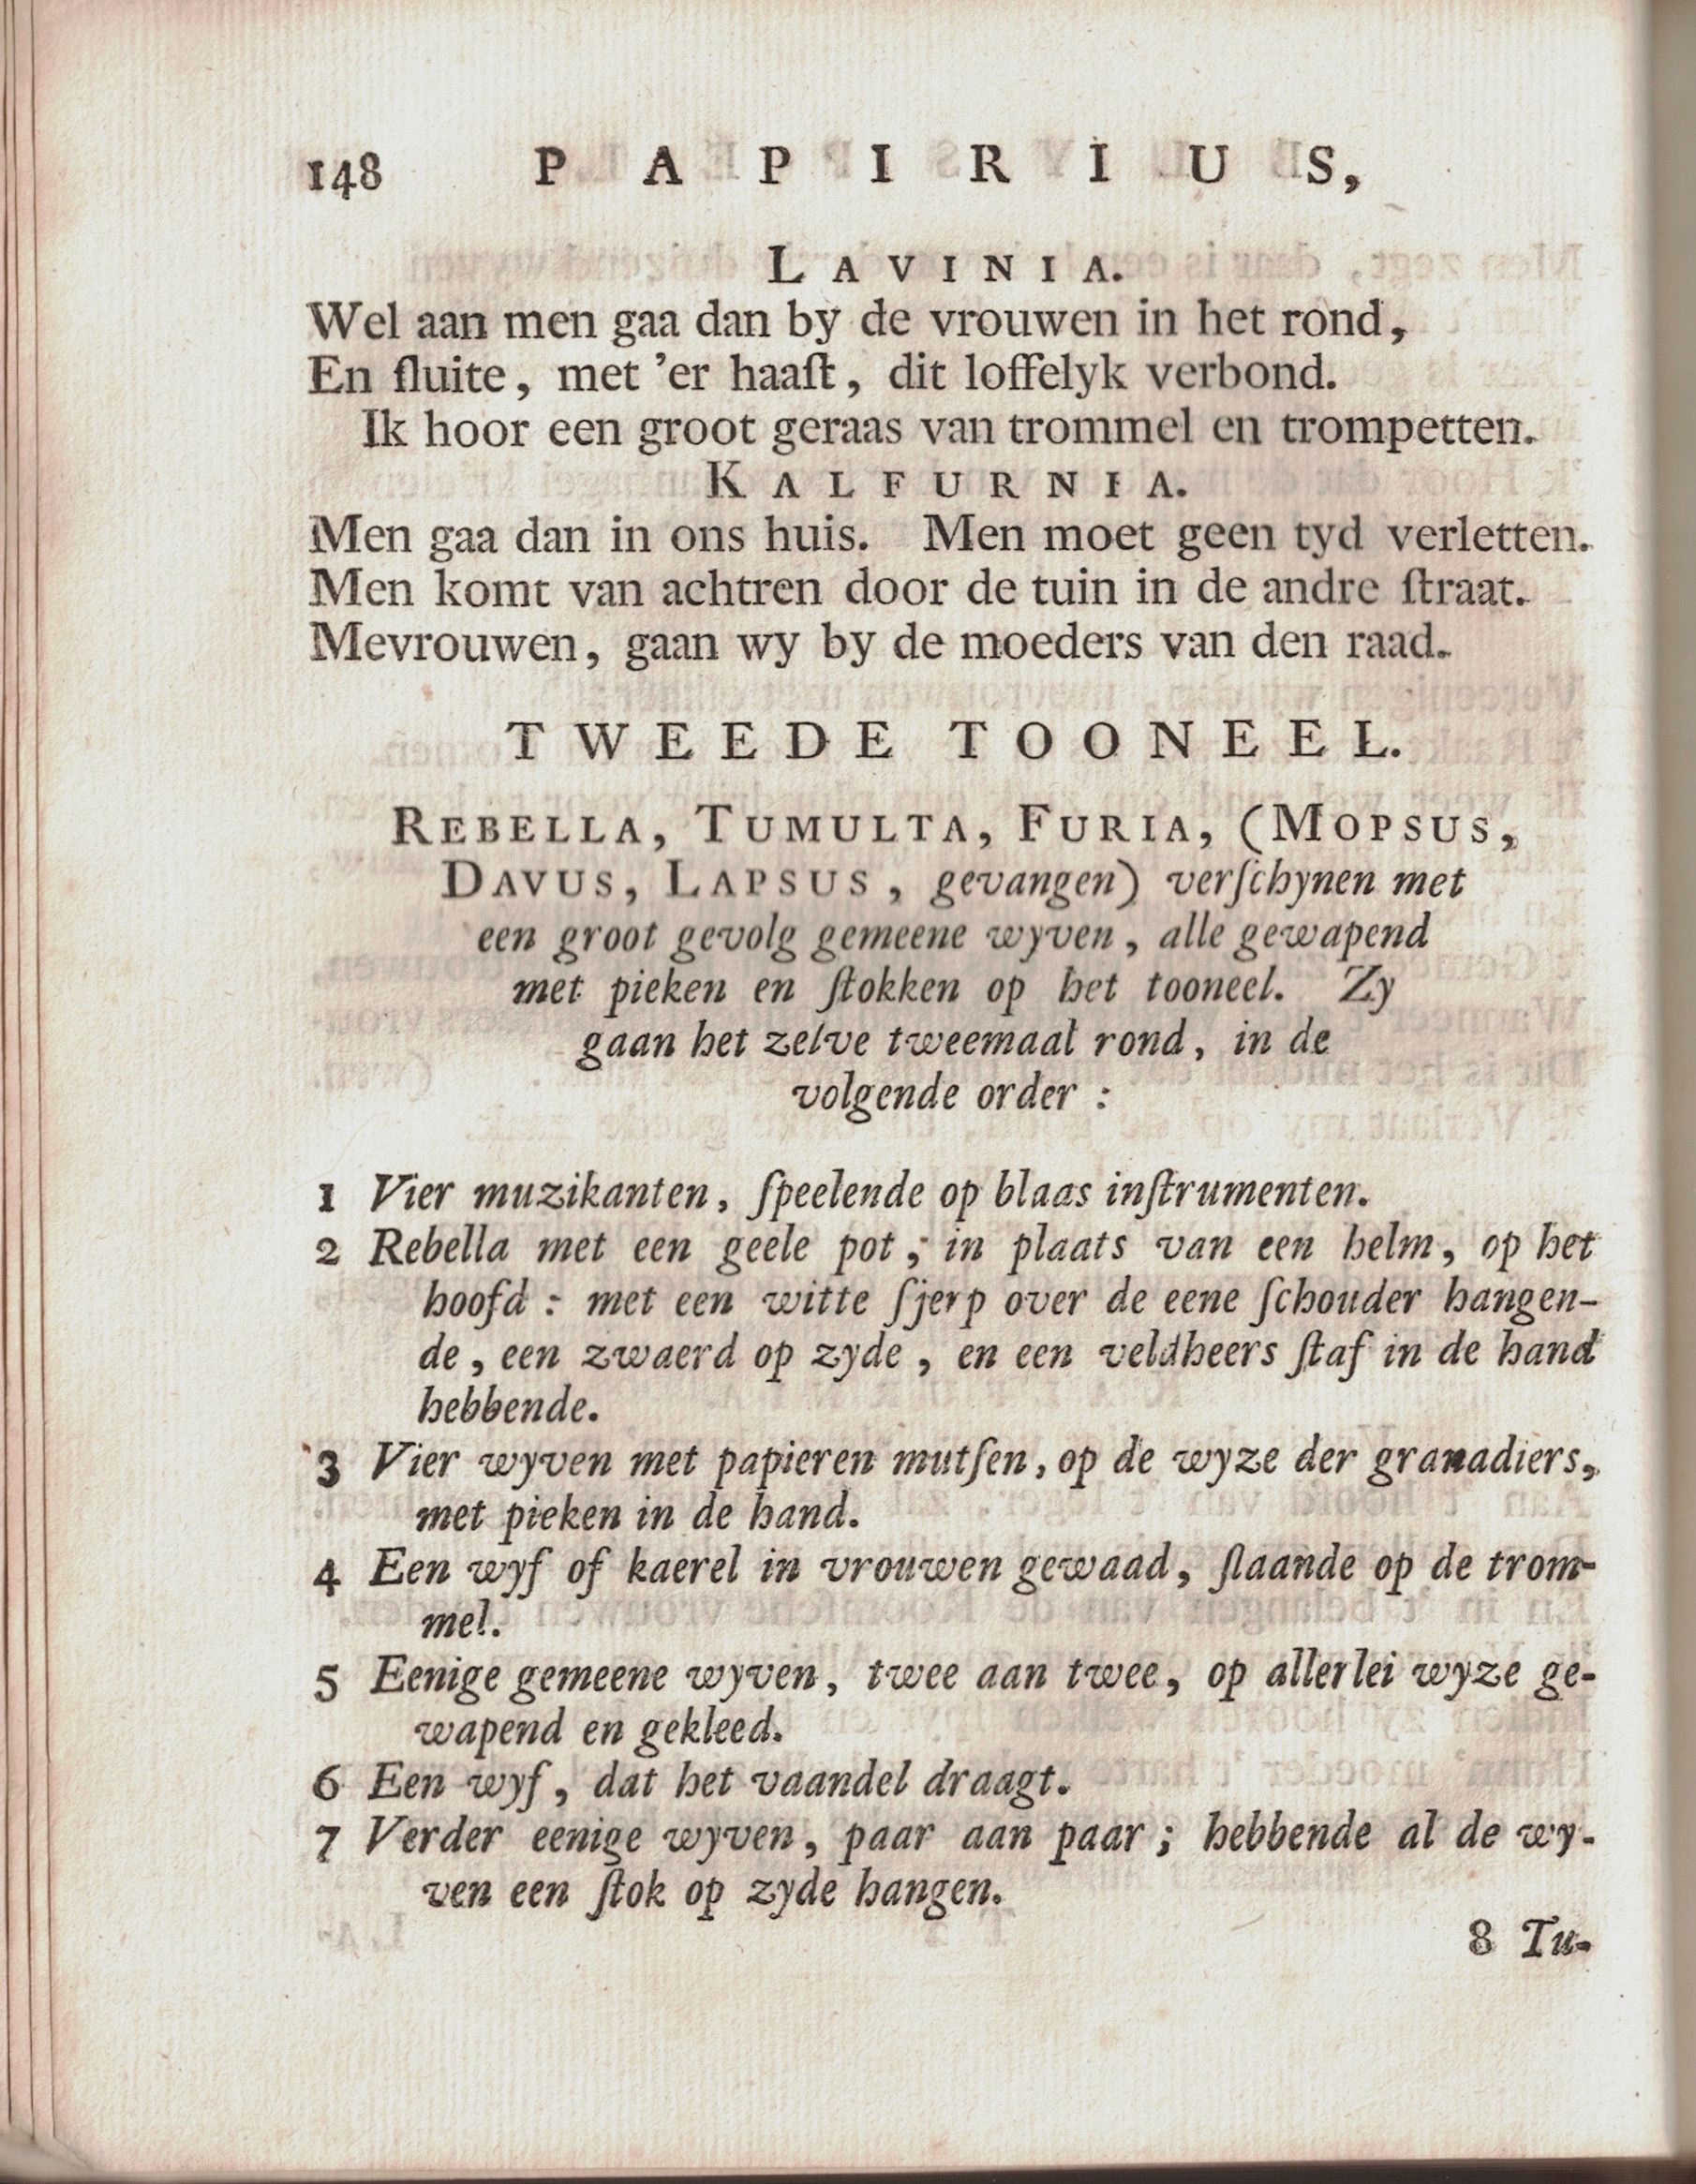 148 PAPIRIUS,
LAVINIA.
Wel aan men gaa dan by de vrouwen in het rond,
En ſluite, met 'er haaſt, dit loffelyk verbond.
Ik hoor een groot geraas van trommel en trompetten.
KALFURNIA.
Men gaa dan in ons huis. Men moet geen tyd verletten.
Men komt van achtren door de tuin in de andre ſtraat.
Mevrouwen, gaan wy by de moeders van den raad.
TWEEDE TOONEEL.
REBELLA, TUMULTA, FURIA, (MOPSUS,
DAVUS, LAPSUS, gevangen) verſchynen met
een groot gevolg gemeene wyven, alle gewapend
met pieken en ſtokken op het tooneel. Zy
gaan het zelve tweemaal rond, in de
volgende order :
1 Vier muzikanten, ſpeelende op blaas inſtrumenten.
2 Rebella met een geele pot, in plaats van een helm, op het
hoofd : met een witte ſjerp over de eene ſchouder hangen-
de, een zwaerd op zyde, en een veldheers ſtaf in de hand
hebbende.
3 Vier wyven met papieren mutſen, op de wyze der granadiers,
met pieken in de hand.
4 Een wyf of kaerel in vrouwen gewaad, ſlaande op de trom-
mel.
5 Eenige gemeene wyven, twee aan twee, op allerlei wyze ge-
wapend en gekleed.
6 Een wyf, dat het vaandel draagt.
7 Verder eenige wyven, paar aan paar; hebbende al de wy-
ven een ſtok op zyde hangen.
8 Tu-